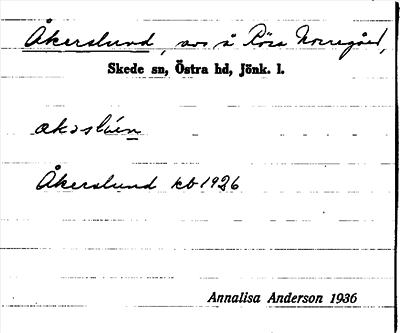 Åkerslund, avs å Röra Norregård,
Skede sn, Östra hd, Jönk. l.
åkaslún
Åkerslund kb 1926
Annalisa Anderson 1936